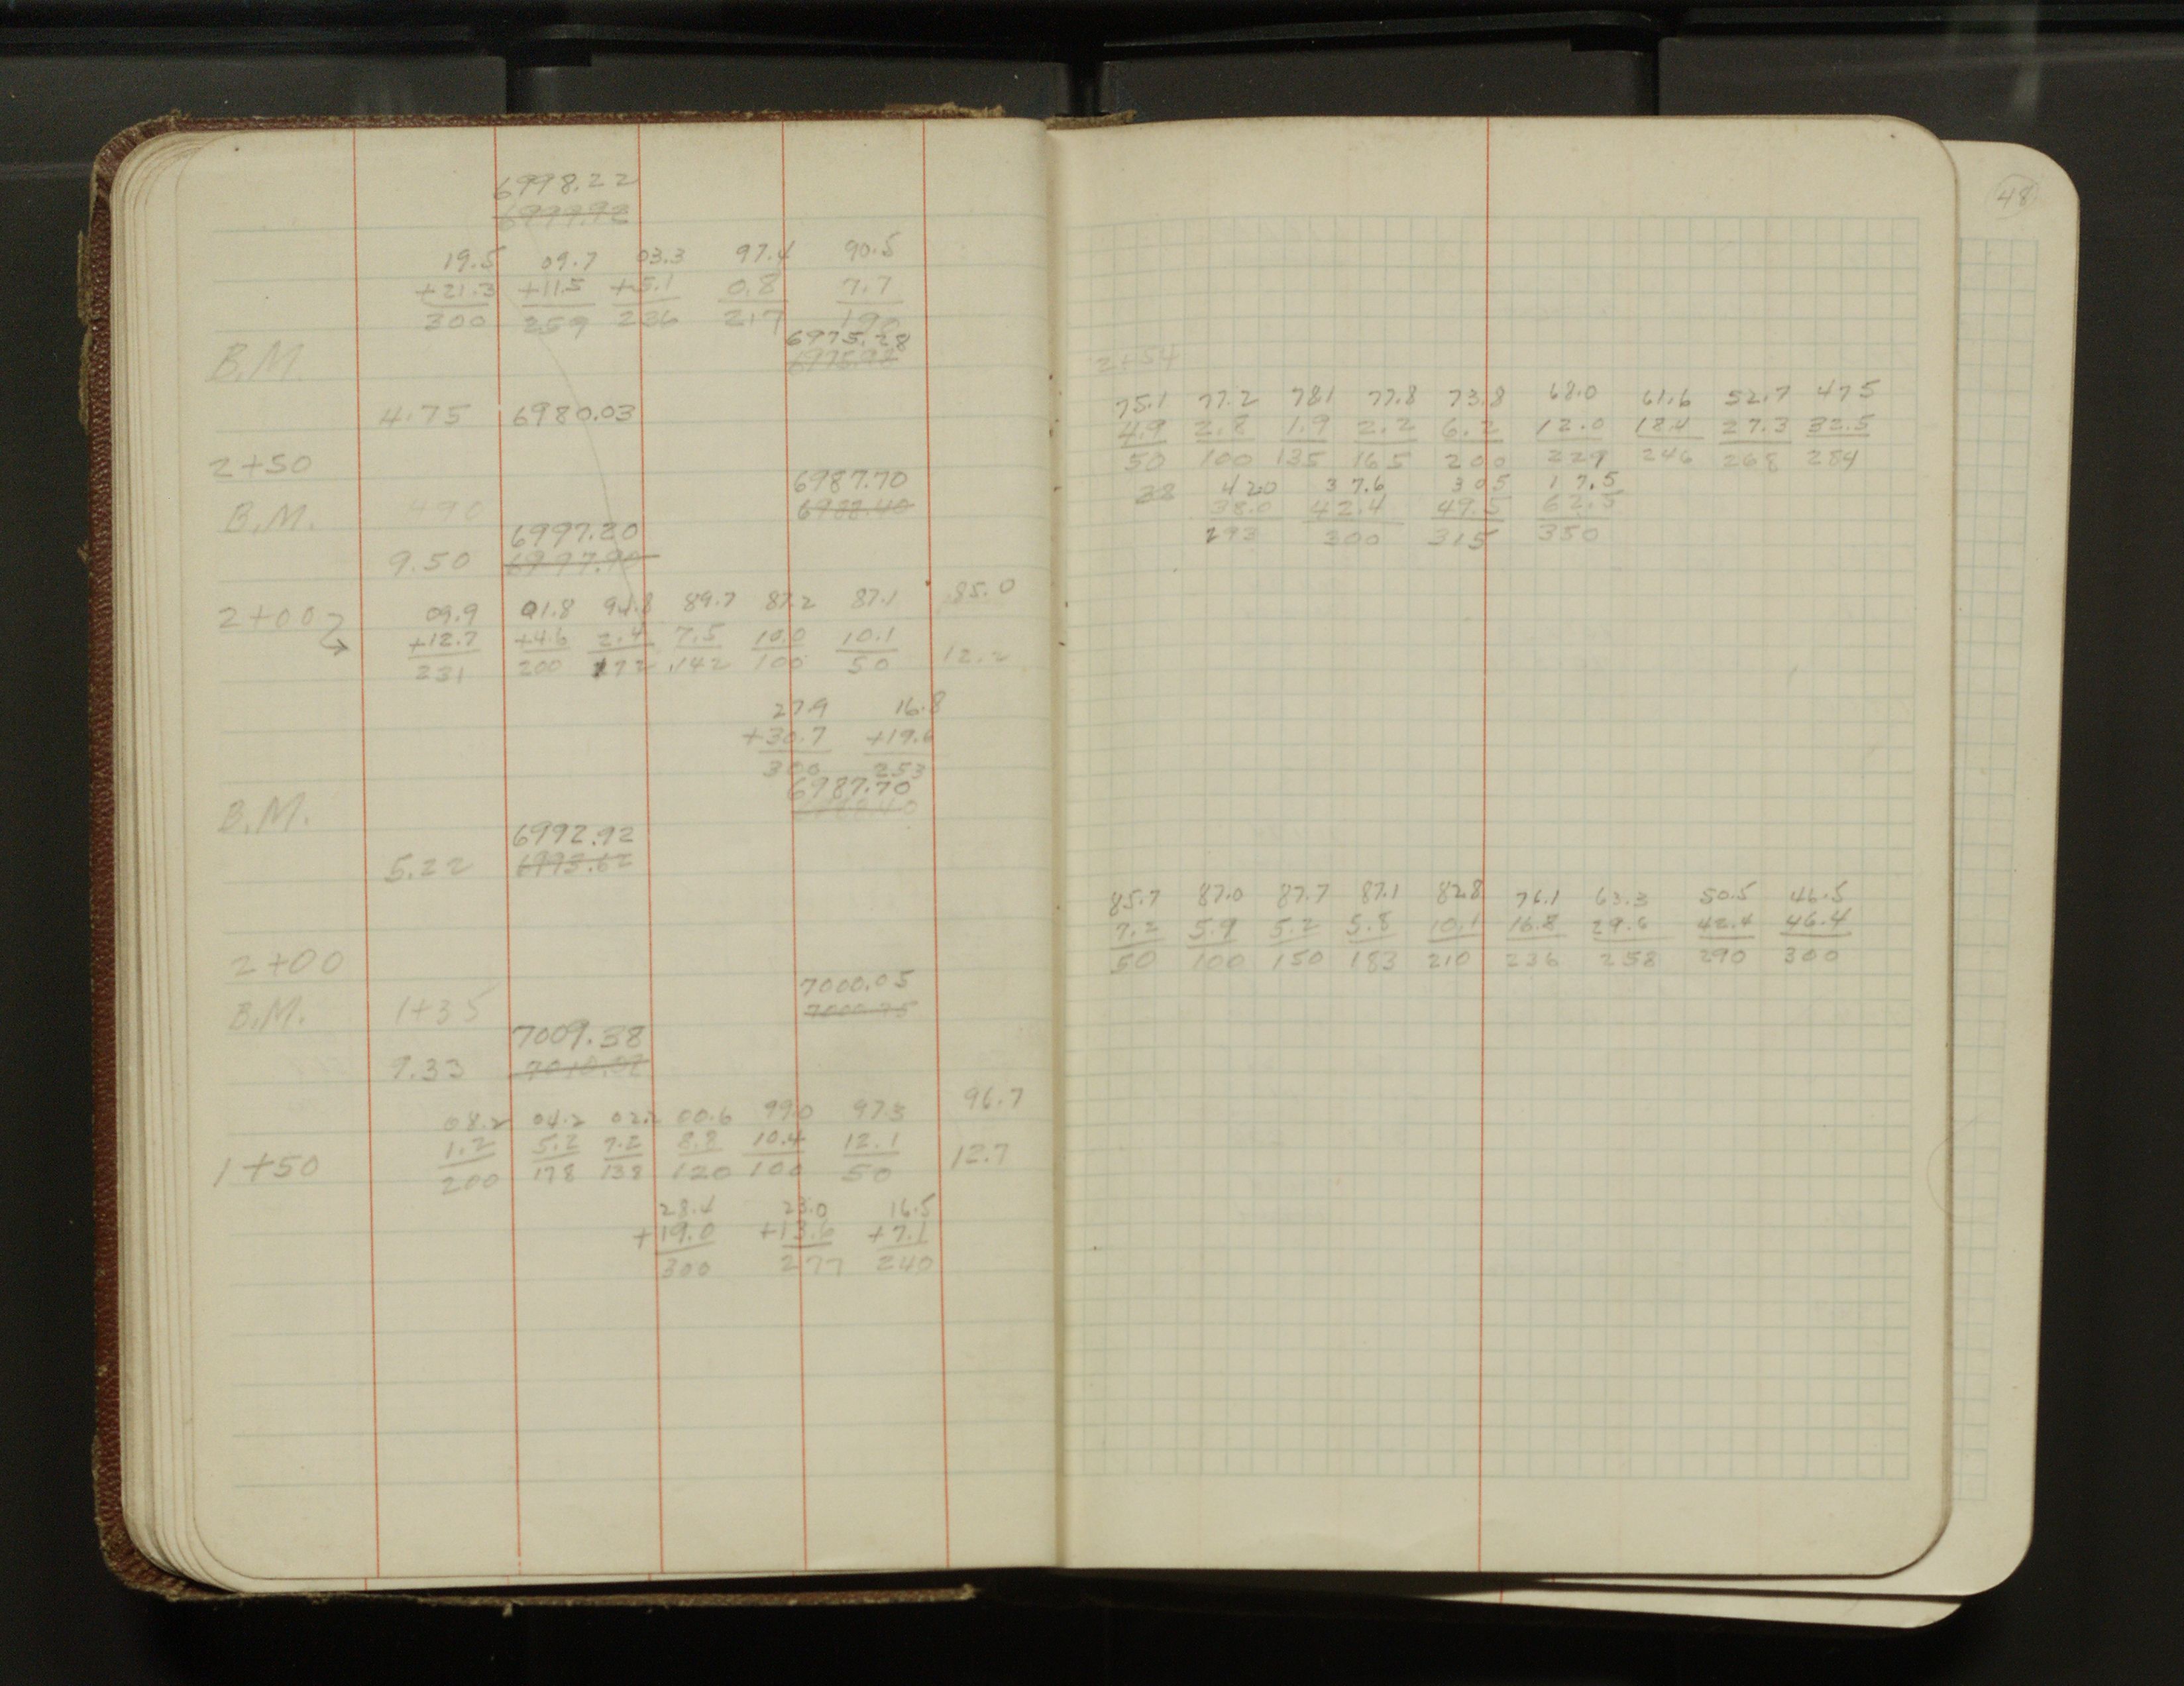 6998.22
6999.92
19.5 09.7 03.3 97.4 90.5
+21.3 +11.5 +5.1 0.8 7.7
300 259 236 217 190
6975.28
B.M. 6975.98
4.75 6980.03
2+50
6987.70
B.M. 490 6988.40
6997.20
9.50 6997.90
2+00 09.9 01.8 94.8 89.7 87.2 87.1 85.0
+12.7 +4.6 2.4 7.5 10.0 10.1
231 200 172 142 100 50 12.2
27.9 16.8
+30.7 +19.6
300 253
6987.70
B.M. 6988.40
6992.92
5.22 6993.62
2+00
7000.05
B.M. 1+35 7000.75
7009.38
9.33 7010.08
08.2 04.2 02.2 00.6 99.0 97.3 96.7
1.2 5.2 7.2 8.8 10.4 12.1
1+50 200 178 138 120 100 50 12.7
28.4 23.0 16.5
+19.0 +13.6 +7.1
300 277 240
48
2+54
75.1 77.2 78.1 77.8 73.8 68.0 61.6 52.7 47.5
4.9 2.8 1.9 2.2 6.2 12.0 18.4 27.3 32.5
50 100 135 165 200 229 246 268 284
38 42.0 37.6 30.5 17.5
38.0 42.4 49.5 62.5
293 300 315 350
85.7 87.0 87.7 87.1 82.8 76.1 63.3 50.5 46.5
7.2 5.9 5.2 5.8 10.1 16.8 29.6 42.4 46.4
50 100 150 183 210 236 258 290 300